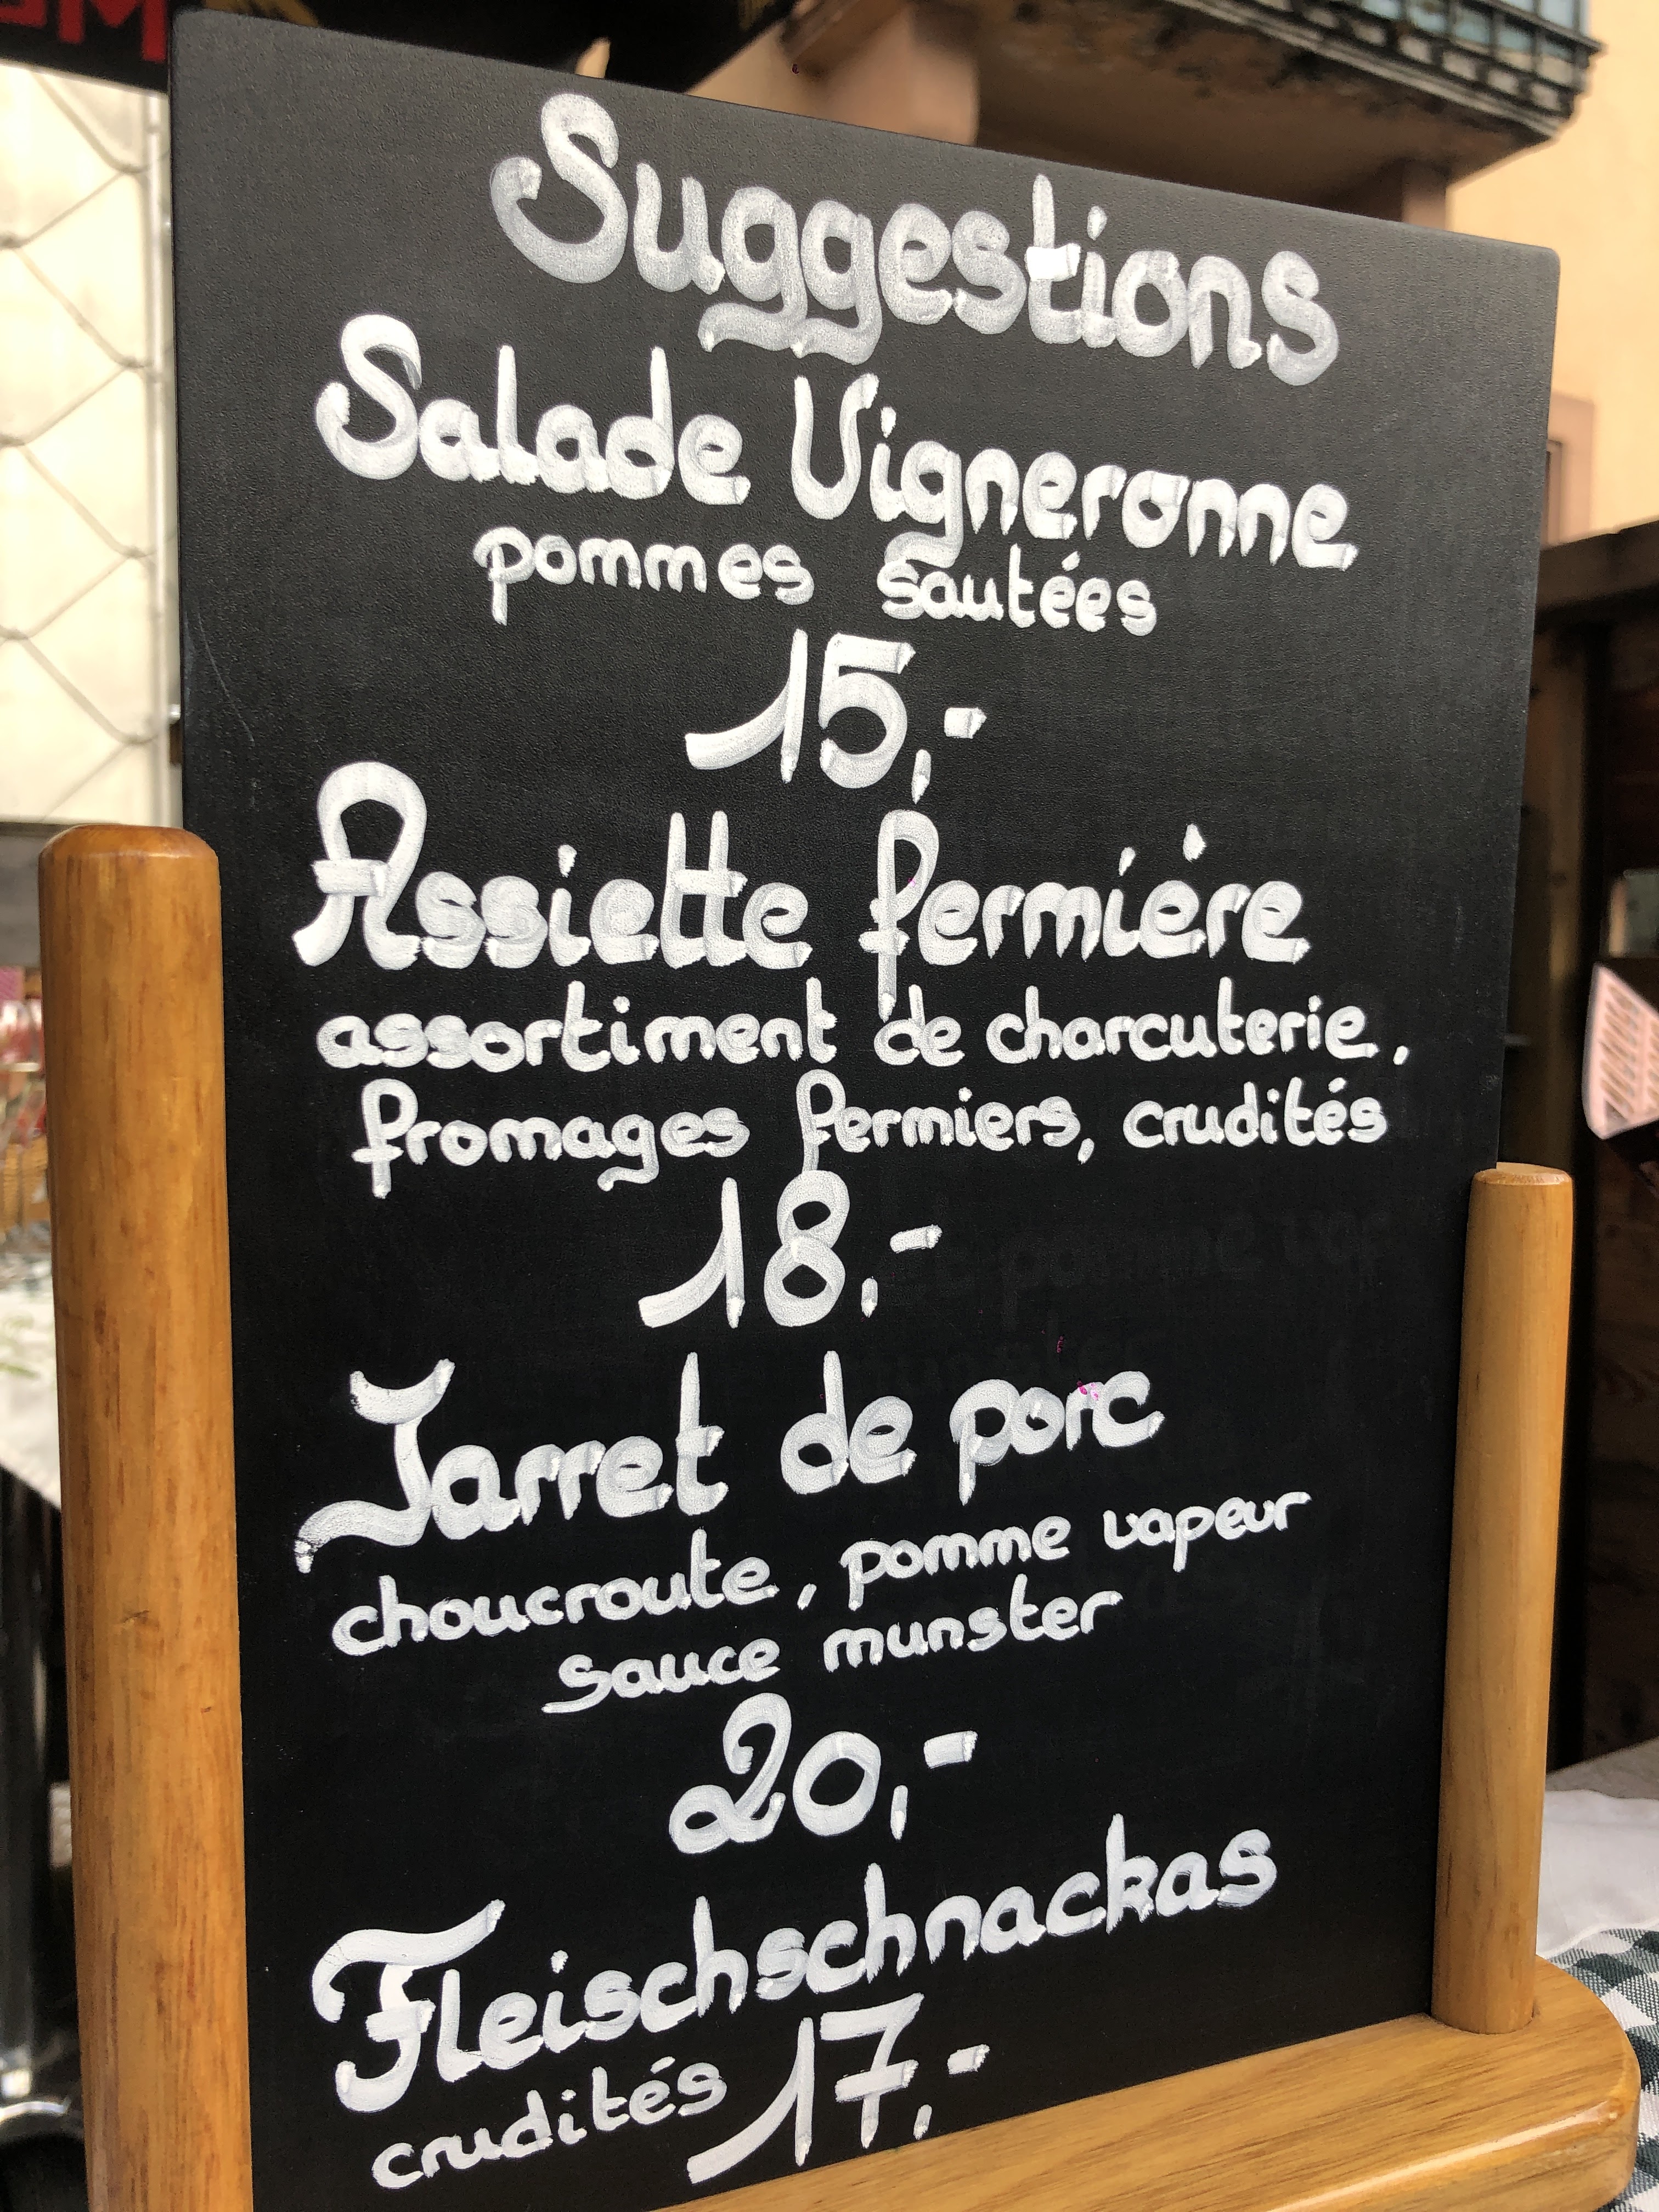 Suggestions
Salade Vigneronne
pommes sautées
15,-
Assiette fermière
assortiment de charcuterie,
fromages fermiers, crudités
18,-
Jarret de porc
choucroute, pomme vapeur
sauce munster
20,-
Fleischschnackas
crudités 17,-